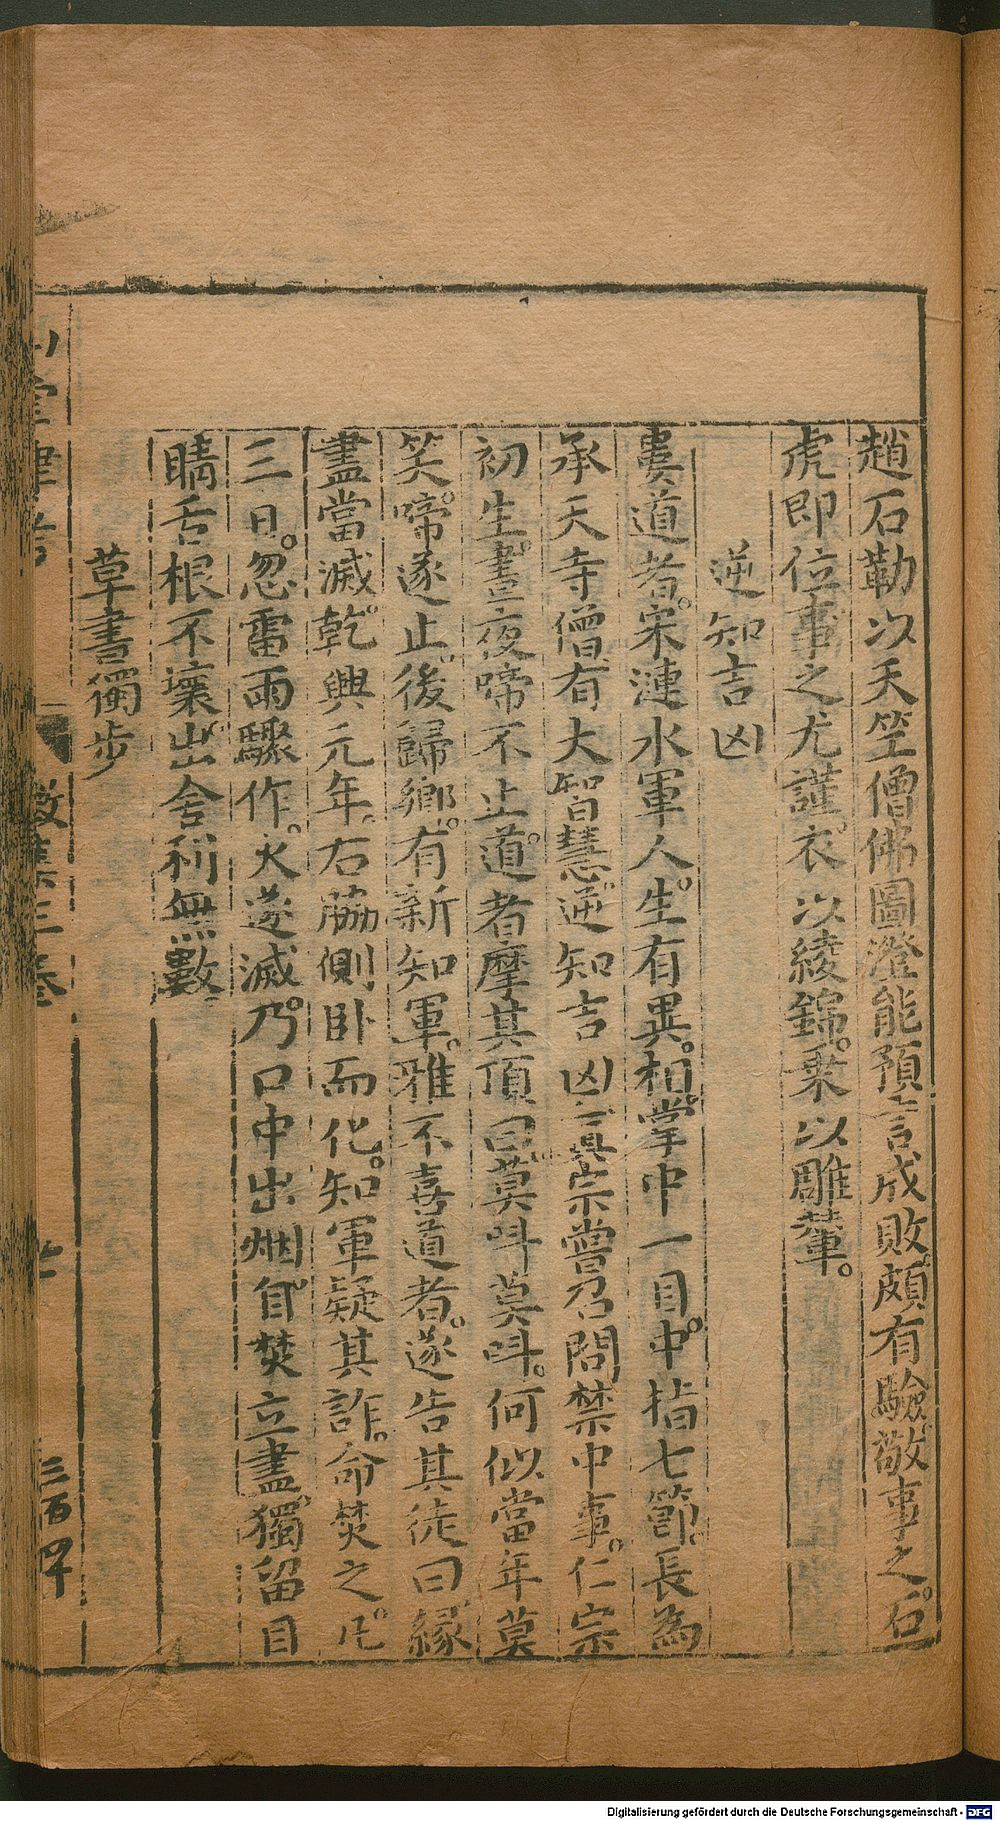 趙石勒以天竺僧佛圖澄能預言成敗頗有驗敬事之石
虎即位事之尤謹衣以綾錦乗以雕輦
逆知言凶
婁道者宋漣水軍人生有異相掌中一目中指七節長為
承天寺僧有大智慧逆知吉凶真宗嘗召問禁中事仁宗
初生晝夜啼不止道者摩其頂曰莫呌莫呌何似當年莫
笑啼遂止後歸鄉有新知軍雅不喜道者遂告其徒曰縁
盡當滅乾興元年右脇側卧而化知軍疑其詐命焚之凡
三日忽雷雨驟作火遂滅乃口中出烟自焚立盡獨留目
睛舌根不壞出舍利無數
草書獨步
山堂肆考
徴集三卷
三百四
Digitalisierung gefördert durch die Deutsche Forschungsgemeinschaft - DFG